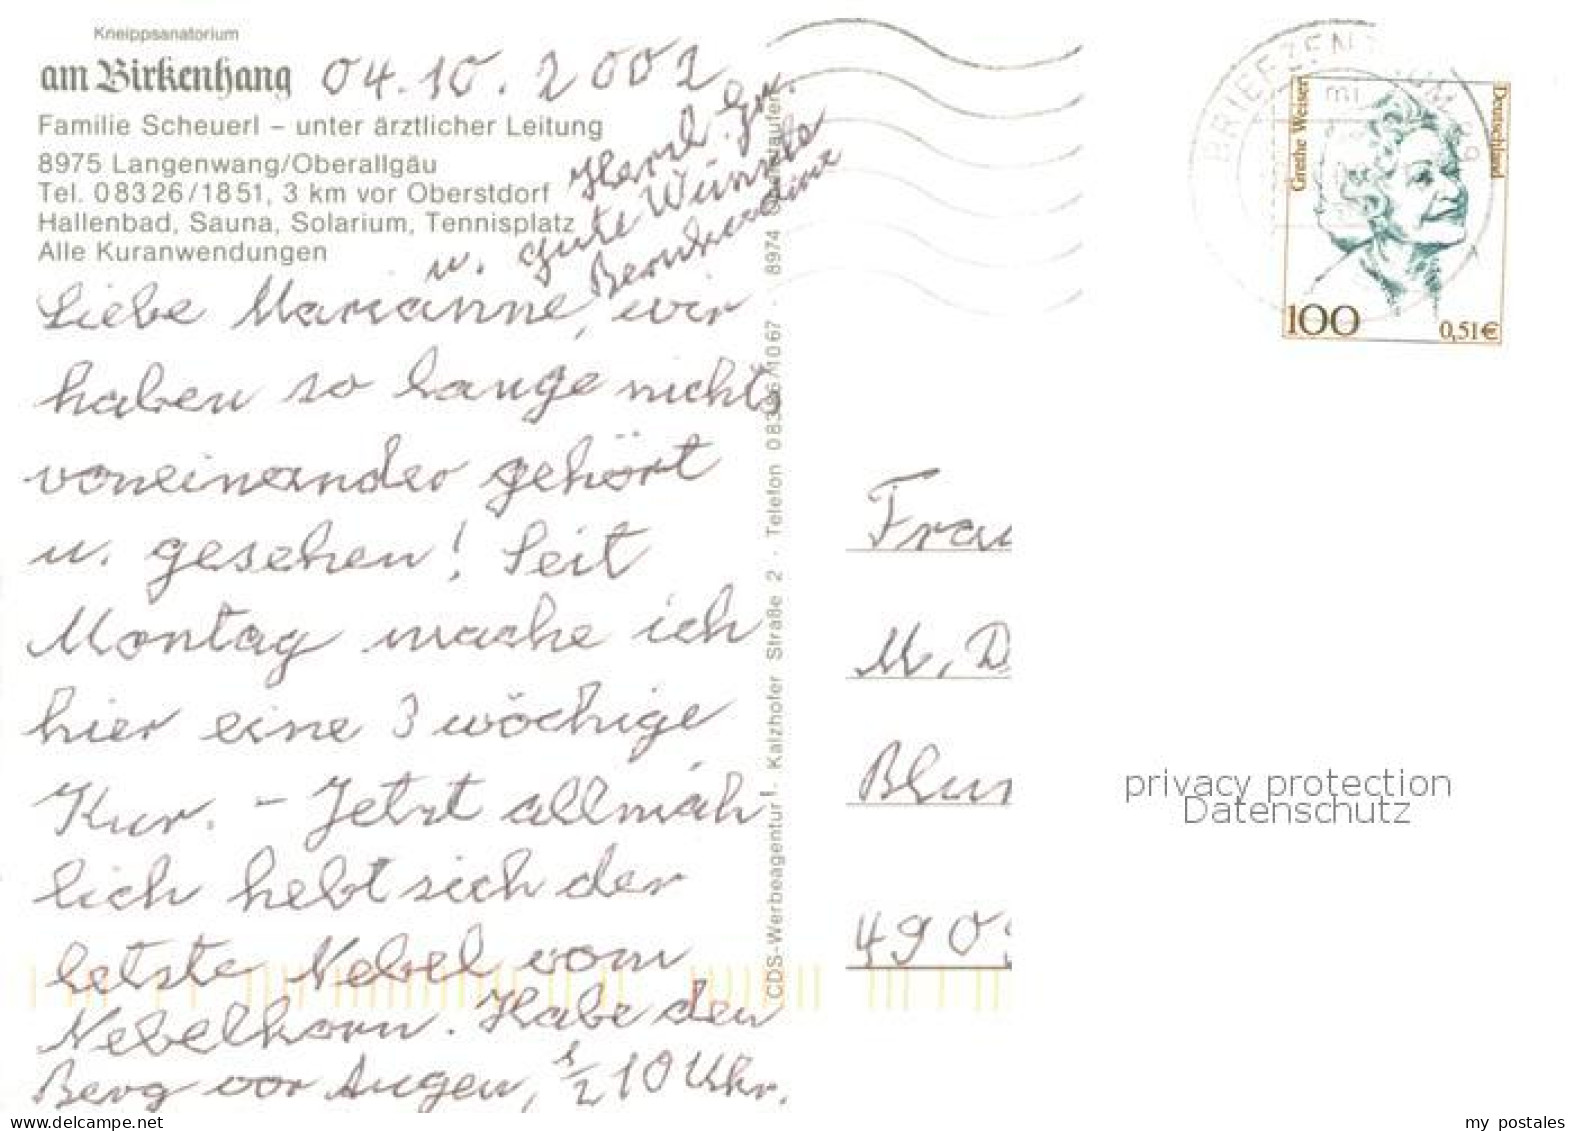 Kneippsanatorium
am Birkenhang
04.10.2002
Familie Scheuerl – unter ärztlicher Leitung
8975 Langenwang/Oberallgäu
Tel. 08326/1851, 3 km vor Oberstdorf
Hallenbad, Sauna, Solarium, Tennisplatz
Alle Kuranwendungen
Liebe Marianne, wir
haben so lange nichts
voneinander gehört
u. gesehen! Seit
Montag mache ich
hier eine 3 wöchige
Kur. – Jetzt allmäh
lich hebt sich der
letzte Nebel vom
Nebelhorn. Habe den
Berg vor Augen, 1/2 10 Uhr.
Herzl. Gr.
u. gute Wünsche
CDS-Werbeagentur · Kalzhofer Straße 2 · Telefon 08386/1067 · 8974 Oberstaufen
BRIEFZENTRUM
Grethe Weiser
Deutschland
100
0,51€
Frau
M. D
Blu
490
privacy protection
Datenschutz
www.delcampe.net
my_postales